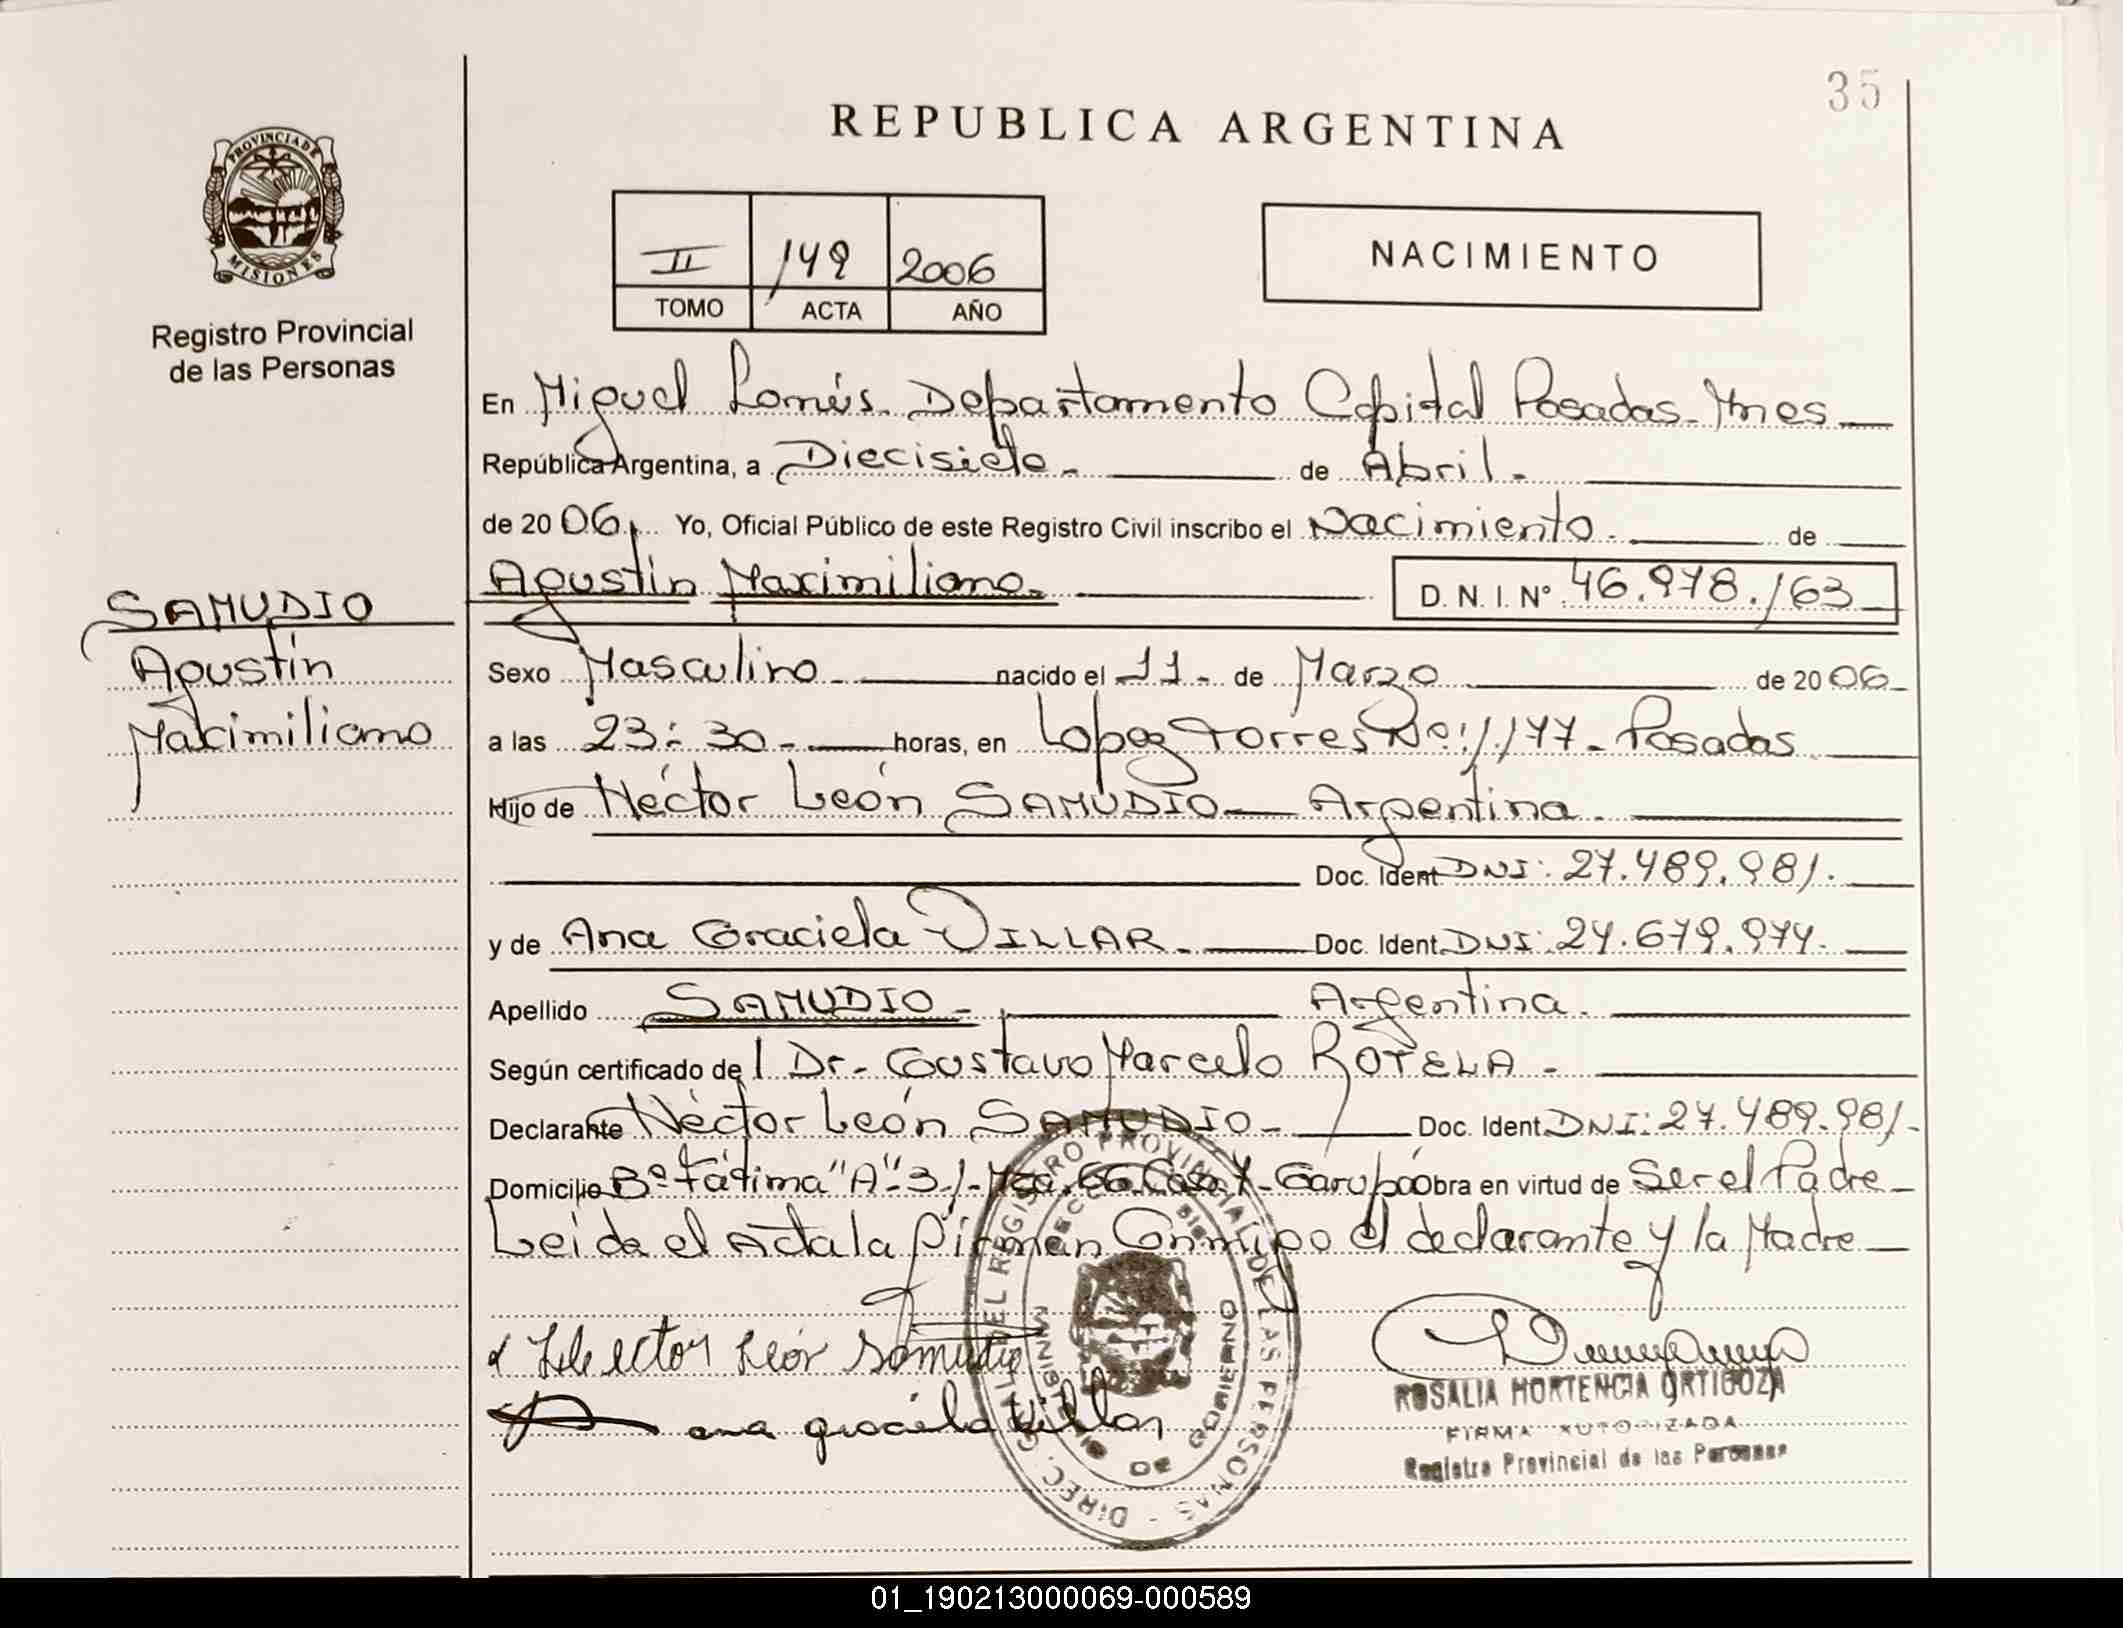 35
REPUBLICA ARGENTINA
PROVINCIA DE
MISIONES
Registro Provincial
de las Personas
II 149 2006
TOMO ACTA AÑO
NACIMIENTO
En Miguel Lanús. Departamento Capital Posadas-Mnes
República Argentina, a Diecisiete- de Abril-
de 2006. Yo, Oficial Público de este Registro Civil inscribo el Nacimiento. de
Agustín Maximiliano. D. N. I. Nº 46.978.163
SAMUDIO
Agustín
Maximiliano
Sexo Masculino- nacido el 11- de Marzo de 2006-
a las 23:30- horas, en Lopez Torres No:1.177- Posadas
Hijo de Héctor León SAMUDIO- Argentina.
Doc. Ident. DNI: 27.489.981.
y de Ana Graciela VILLAR. Doc. Ident. DNI: 24.679.974.
Apellido SAMUDIO- Argentina.
Según certificado del Dr- Gustavo Marcelo ROTELA-
Declarante Héctor León SAMUDIO- Doc. Ident. DNI: 27.489.981-
Domicilio Bº Fátima "A"-31- Mza. 66 Casa Garupá obra en virtud de Ser el Padre-
Leida el Acta la firman Conmigo el declarante y la Madre
Héctor León Samudio
ana graciela villar
DIREC. GRAL. DEL REGISTRO PROVINCIAL DE LAS PERSONAS
MINISTERIO DE GOBIERNO
ROSALIA HORTENCIA ORTIGOZA
FIRMA AUTORIZADA
Registro Provincial de las Personas
01_190213000069-000589